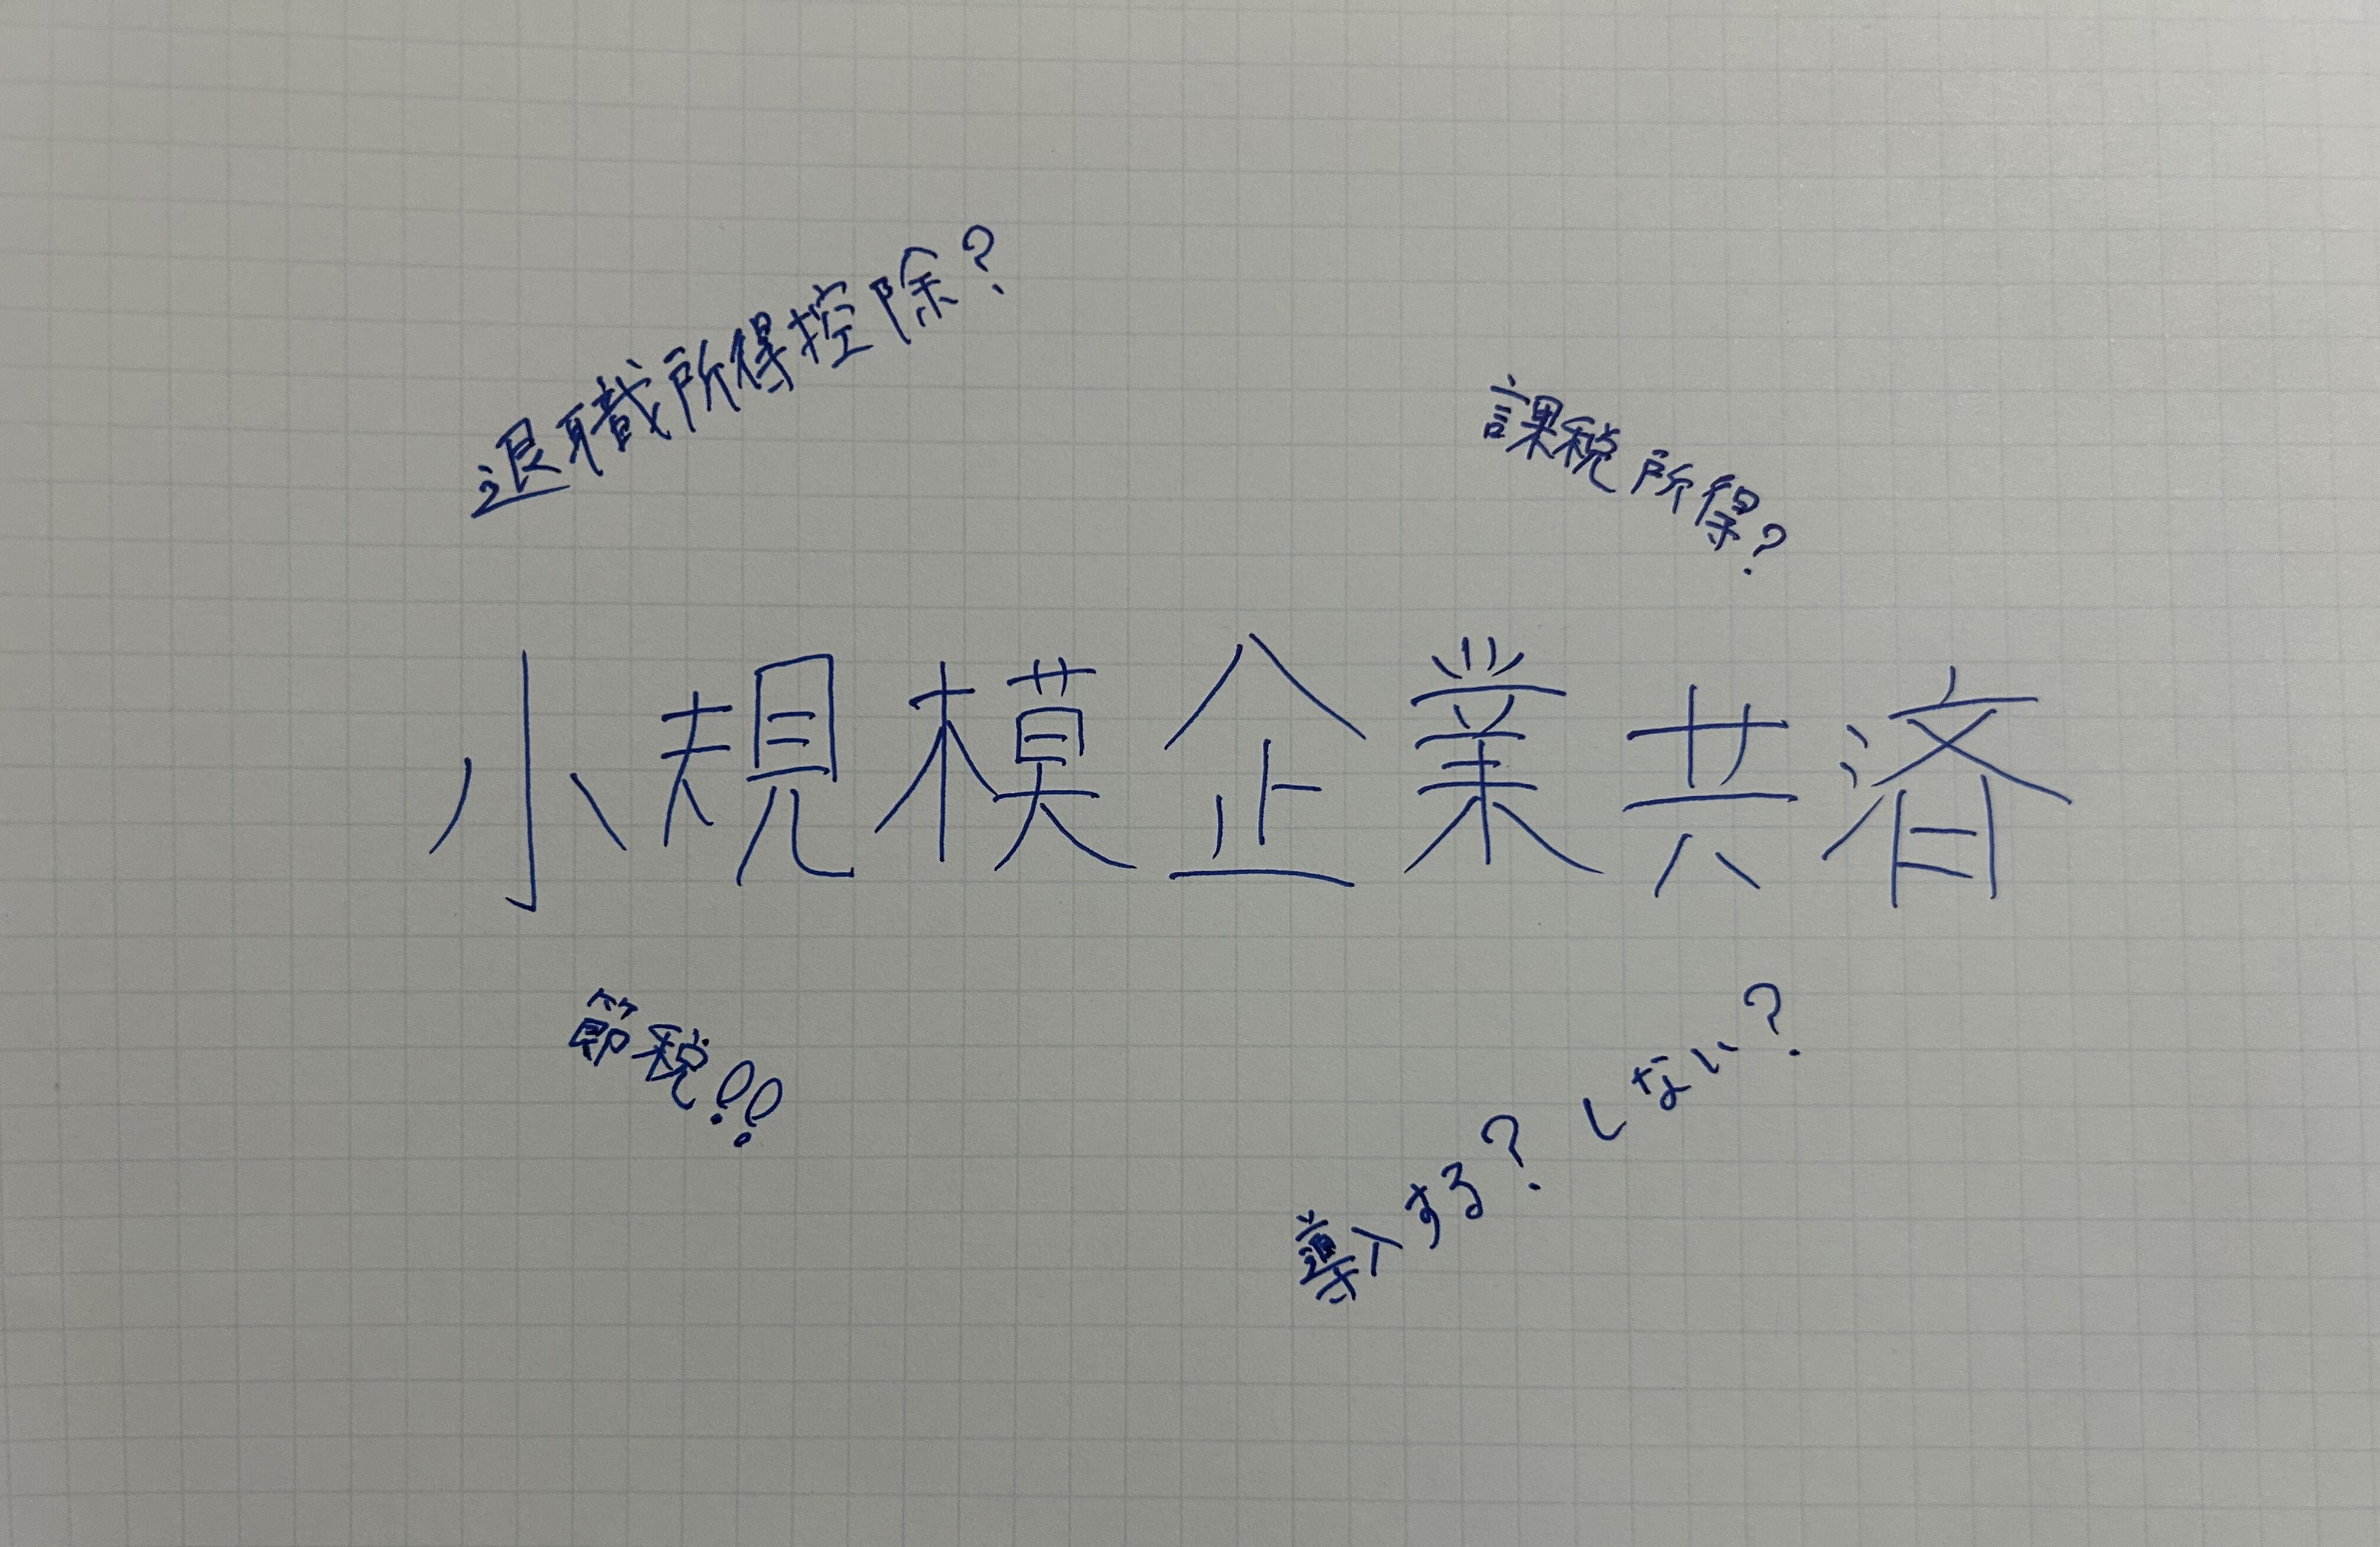 退職所得控除?
課税所得?
小規模企業共済
節税!!
導入する? しない?